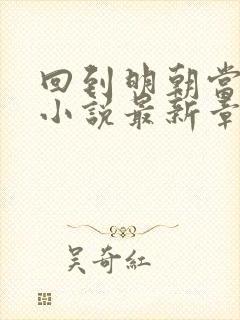 回到明朝當
小說最新章
吴奇紅